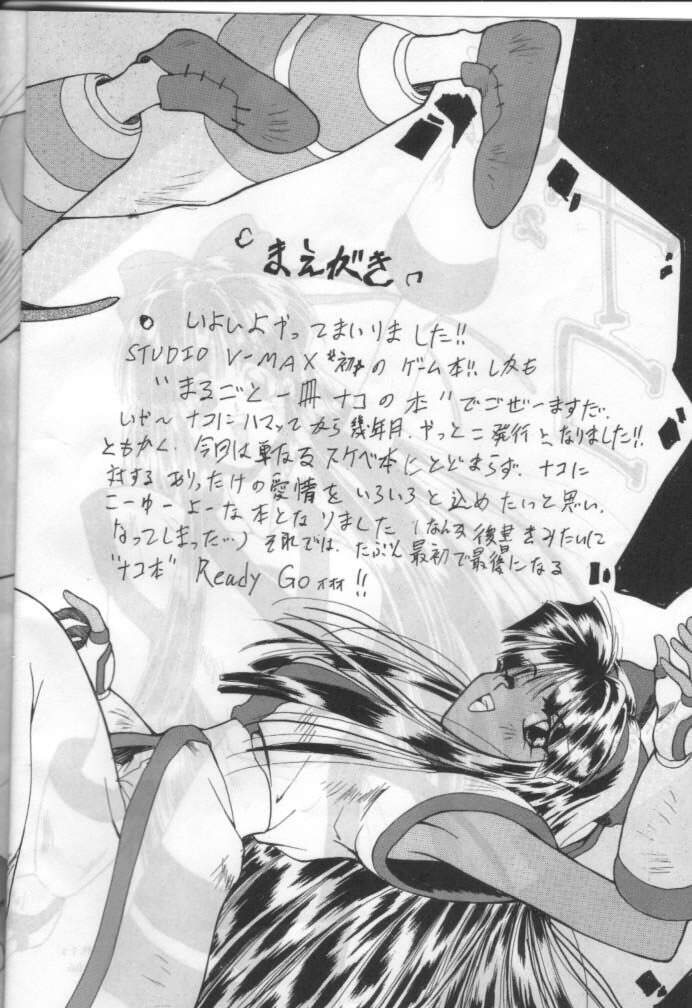 『まえがき』
○ いよいよやってまいりました!!
STUDIO V-MAX "初"の ゲーム本!! しかも
"まるごと一冊ナコの本"でごぜーますだ.
いや〜 ナコにハマッてから幾年月. やっとこ発行となりました!!
ともかく. 今回は単なるスケベ本にとどまらず. ナコに
対するありったけの愛情をいろいろと込めたいっと思い.
こーゆーよーな本となりました (なんか後書きみたいに
なってしまった…) それでは. たぶん最初で最後になる
"ナコ本" Ready Go !!